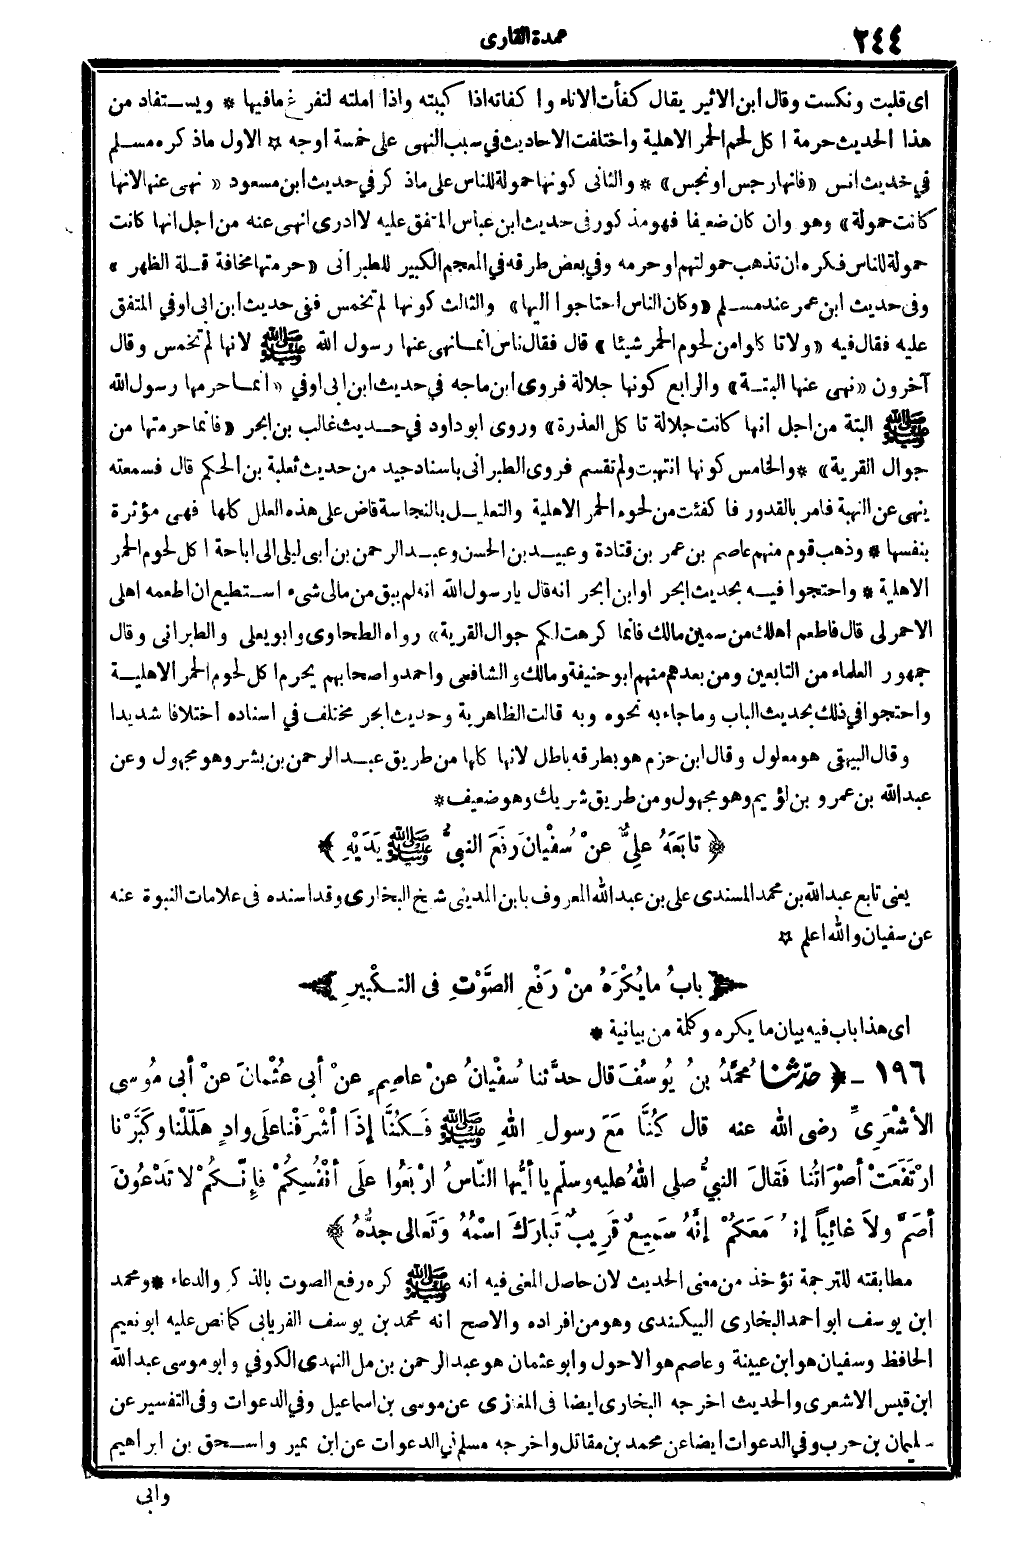 ٢٤٤
عمدة القارى
اى قلبت ونكست وقال ابن الاثير يقال كفأت الاناء واكفاته اذا كببته واذا املته لتفرغ مافيها * ويستفاد من
هذا الحديث حرمة اكل لحم الحمر الاهلية واختلفت الاحاديث في سبب النهى على خمسة اوجه * الاول ماذكره مسلم
في حديث انس «فانها رجس او نجس» * والثانى كونها حمولة للناس على ماذكر في حديث ابن مسعود « نهى عنها لانها
كانت حمولة» وهو وان كان ضعيفا فهو مذكور فى حديث ابن عباس المتفق عليه لا ادرى انهى عنه من اجل انها كانت
حمولة للناس فكره ان تذهب حمولتهم او حرمه وفي بعض طرقه في المعجم الكبير للطبرانى «حرمتها مخافة قلة الظهر»
وفى حديث ابن عمر عند مسلم «وكان الناس احتاجوا اليها» والثالث كونها لم تخمس ففى حديث ابن ابى اوفي المتفق
عليه فقال فيه «ولا تاكلوا من لحوم الحمر شيئا» قال فقال ناس انما نهى عنها رسول الله ﷺ لانها لم تخمس وقال
آخرون «نهى عنها البتة» والرابع كونها جلالة فروى ابن ماجه في حديث ابن ابى اوفي « انما حرمها رسول الله
ﷺ البتة من اجل انها كانت جلالة تاكل العذرة» وروى ابو داود في حديث غالب بن ابجر «فانما حرمتها من
جوال القرية» * والخامس كونها انتهبت ولم تقسم فروى الطبرانى باسناد جيد من حديث ثعلبة بن الحكم قال فسمعته
ينهى عن النهبة فامر بالقدور فاكفئت من لحوم الحمر الاهلية والتعليل بالنجاسة قاض على هذه العلل كلها فهى مؤثرة
بنفسها * وذهب قوم منهم عاصم بن عمر بن قتادة وعبيد بن الحسن وعبد الرحمن بن ابى ليلى الى اباحة اكل لحوم الحمر
الاهلية * واحتجوا فيه بحديث ابجر او ابن ابجر انه قال يارسول الله انه لم يبق من مالى شىء استطيع ان اطعمه اهلى
الاحمر لى قال فاطعم اهلك من سمين مالك فانما كرهت لكم جوال القرية» رواه الطحاوى وابو يعلى والطبرانى وقال
جمهور العلماء من التابعين ومن بعدهم منهم ابو حنيفة ومالك والشافعى واحمد واصحابهم يحرم اكل لحوم الحمر الاهلية
واحتجوا في ذلك بحديث الباب وماجاء به نحوه وبه قالت الظاهرية وحديث ابجر مختلف في اسناده اختلافا شديدا
وقال البيهقى هو معلول وقال ابن حزم هو بطرقه باطل لانها كلها من طريق عبد الرحمن بن بشر وهو مجهول وعن
عبد الله بن عمرو بن لؤيم وهو مجهول ومن طريق شريك وهو ضعيف *
﴿ تابَعَهُ عَلِيٌّ عنْ سُفْيانَ رَفَعَ النبيُّ ﷺ يَدَيْهِ ﴾
يعنى تابع عبد الله بن محمد المسندى على بن عبد الله المعروف بابن المدينى شيخ البخارى وقد اسنده فى علامات النبوة عنه
عن سفيان والله اعلم *
﴿ بابُ مايُكْرَهُ منْ رَفْعِ الصَّوْتِ فى التكْبِيرِ ﴾
اى هذا باب فيه بيان مايكره وكلمة من بيانية *
١٩٦ - ﴿ حدّثنا مُحَمَّدُ بنُ يُوسُفَ قال حدثنا سُفْيانُ عنْ عاصِمٍ عنْ أبى عُثْمانَ عنْ أبى مُوسى
الأشْعَرِىِّ رضى الله عنه قال كُنَّا مَعَ رسولِ اللهِ ﷺ فَكُنَّا إذَا أشْرَفْنا علَى وادٍ هَلَّلْنا وكَبَّرْنا
ارْتَفَعَتْ أصْوَاتُنا فَقالَ النبيُّ صلى اللهُ عليه وسلّم ياأيُّها النّاسُ ارْبَعُوا علَى أنْفُسِكُمْ فإنَّكُمْ لاتَدْعُونَ
أصَمَّ ولاَ غائِباً إنهُ مَعَكُمْ إنَّهُ سَمِيعٌ قَرِيبٌ تَبارَكَ اسْمُهُ وَتَعالى جدُّهُ ﴾
مطابقته للترجمة تؤخذ من معنى الحديث لان حاصل المعنى فيه انه ﷺ كره رفع الصوت بالذكر والدعاء * ومحمد
ابن يوسف ابو احمد البخارى البيكندى وهو من افراده والاصح انه محمد بن يوسف الفريابى كما نص عليه ابو نعيم
الحافظ وسفيان هو ابن عيينة وعاصم هو الاحول وابو عثمان هو عبد الرحمن بن مل النهدى الكوفي وابو موسى عبد الله
ابن قيس الاشعرى والحديث اخرجه البخارى ايضا فى المغازى عن موسى بن اسماعيل وفي الدعوات وفى التفسير عن
سليمان بن حرب وفي الدعوات ايضا عن محمد بن مقاتل واخرجه مسلم في الدعوات عن ابن نمير واسحق بن ابراهيم
وابى